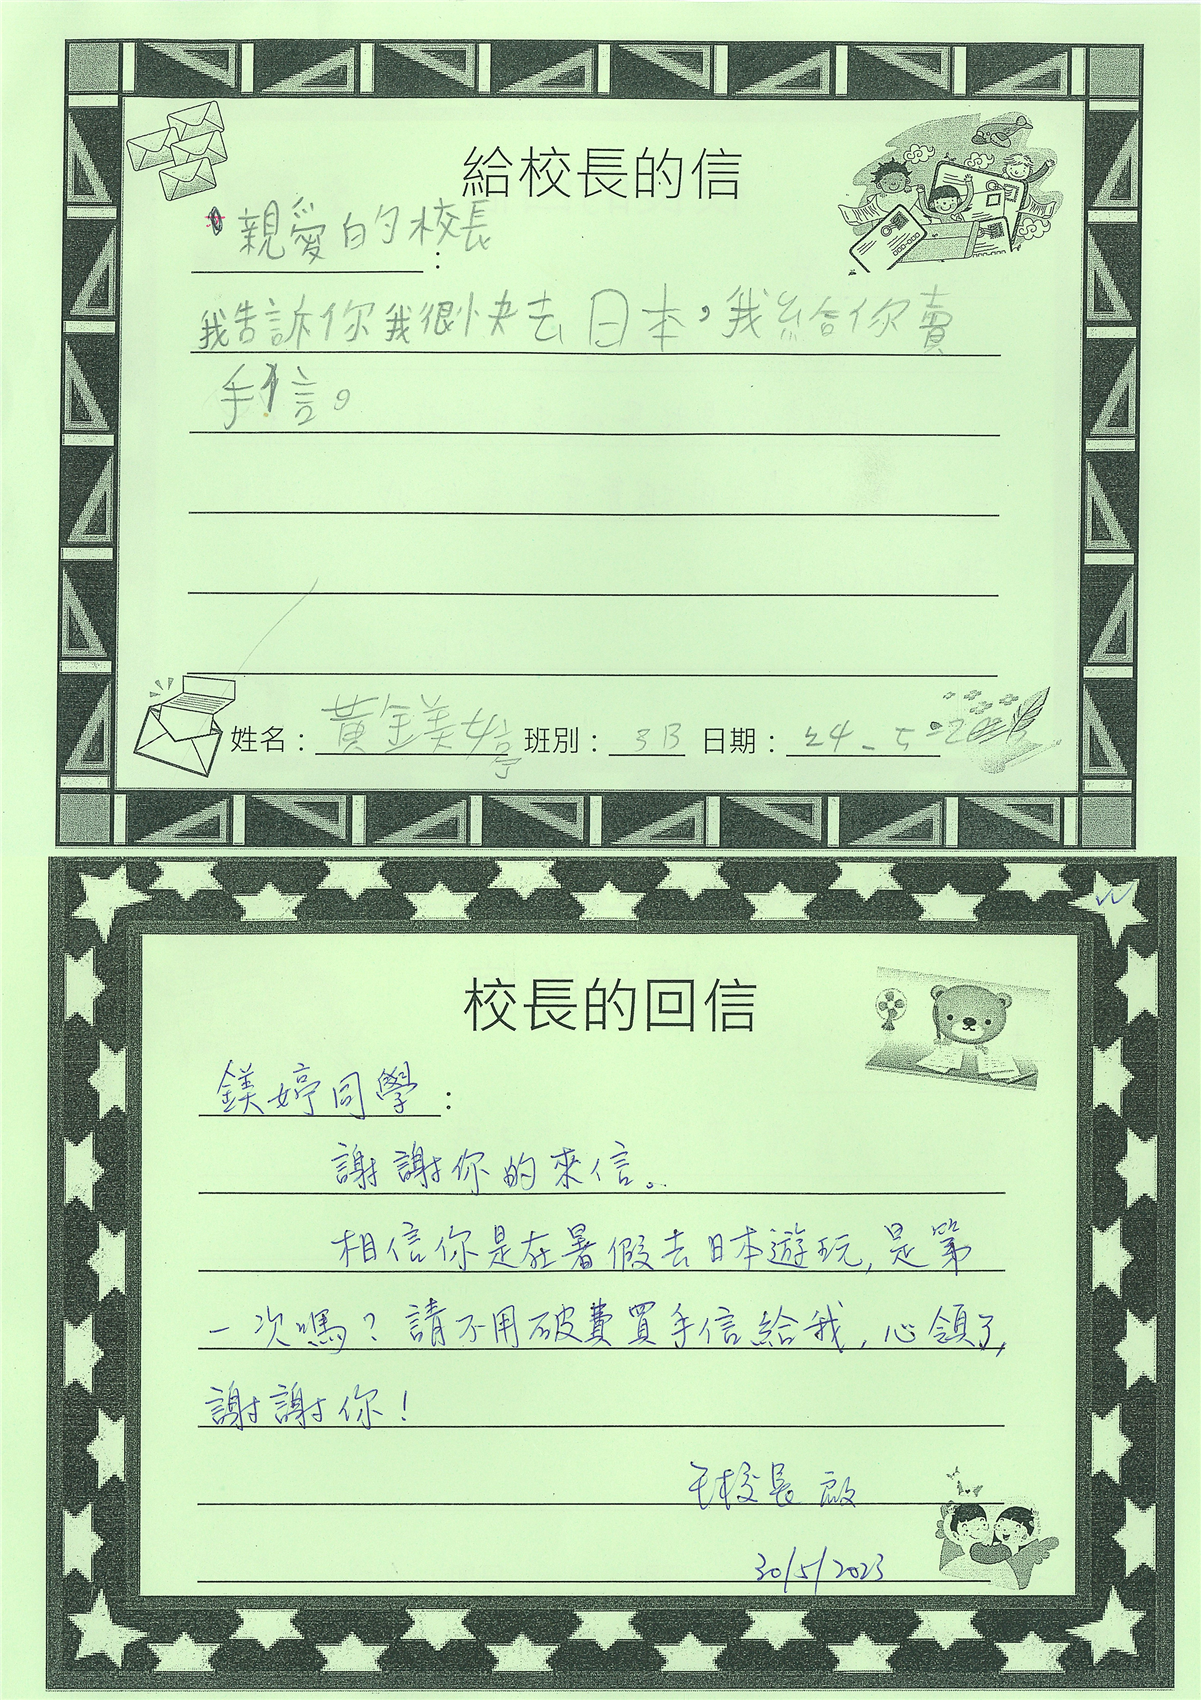 給校長的信
親愛的校長：
我告訴你我很快去日本，我給你賣
手信。
姓名：黃金鎂婷 班別：3B 日期：24-5-2023
校長的回信
鎂婷同學：
謝謝你的來信。
相信你是在暑假去日本遊玩，是第
一次嗎？請不用破費買手信給我，心領了，
謝謝你！
校長 啟
30/5/2023